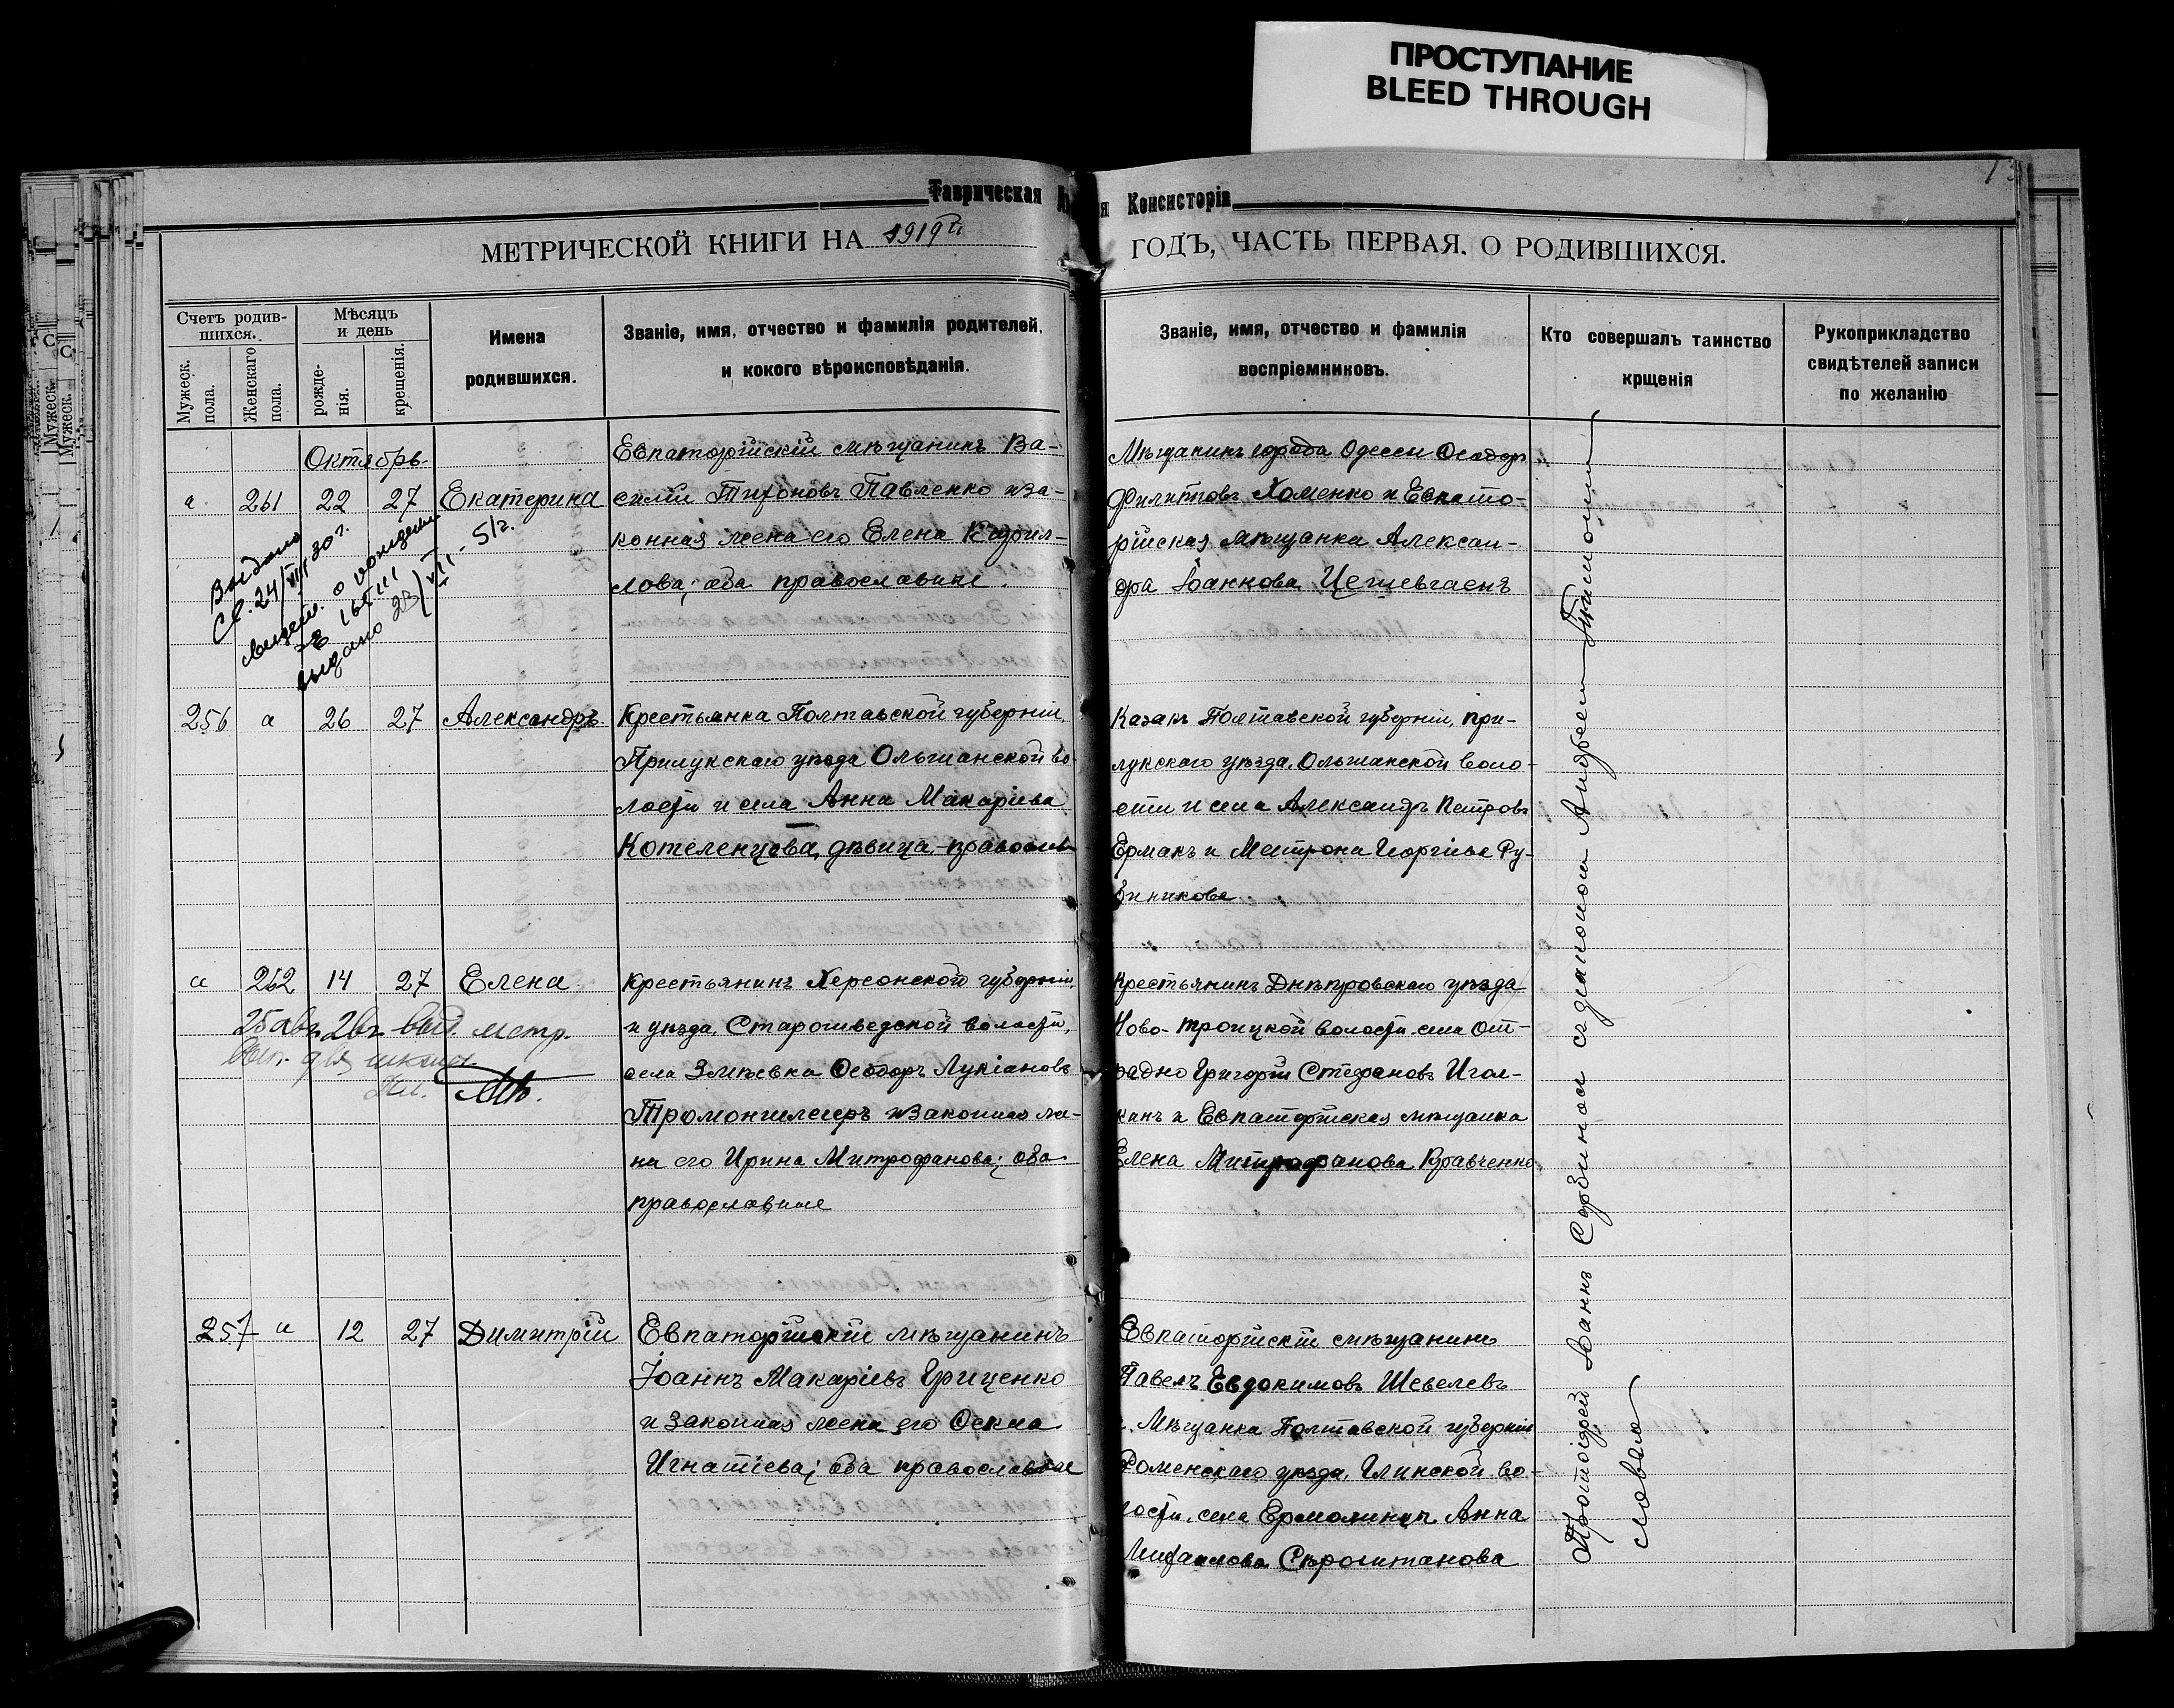 ПРОСТУПАНИЕ
BLEED THROUGH
Таврическая
я Консисторія
МЕТРИЧЕСКОЙ КНИГИ НА 1919й
ГОДЪ, ЧАСТЬ ПЕРВАЯ. О РОДИВШИХСЯ.
Счетъ родив-
шихся.
Мужеск.
пола.
Женскаго
пола.
Мѣсяцъ
и день
рожде-
нія.
крещенія.
Имена
родившихся.
Званіе, имя, отчество и фамилія родителей,
и кокого вѣроисповѣданія.
Званіе, имя, отчество и фамилія
воспріемниковъ.
Кто совершалъ таинство
крщенія
Рукоприкладство
свидѣтелей записи
по желанію
Октябрь
а 261 22 27 Екатерина
Евпаторійскій мѣщанинъ Ва-
силій Тихоновъ Павленко и за-
конная жена его Елена Кирил-
лова; оба православные.
Мѣщанинъ города Одессы Ѳеодоръ
Филиповъ Хоменко и Евпато-
рійская мѣщанка Алексан-
дра Іоаннова
Выдано
Св. 24/VII 30 г.
свидет. о рождении
выдано 23/VII - 51г.
256 а 26 27 Александръ
Крестьянка Полтавской губерніи,
Прилукскаго уѣзда Ольшанской во-
лости и села Анна Макаріева
Котеленцова, дѣвица, православ.
Казакъ Полтавской губерніи, При-
лукскаго уѣзда, Ольшанской воло-
сти и села Александръ Петровъ
Ермакъ и Матрона Георгіева Ру-
а 262 14 27 Елена
25 авг. 26г. выд. метр.
вып. для школы.
Крестьянинъ Херсонской губерніи,
и уѣзда, Старошведской волости,
села Зміевка Ѳеодоръ Лукіановъ
и законная же-
на его Ирина Митрофанова; оба
православные
Крестьянинъ Днѣпровскаго уѣзда
Ново-троицкой волости села От-
радно Григорій Стефановъ Игол-
кинъ и Евпаторійская мѣщанка
Елена Митрофанова Кравченко
257 а 12 27 Димитрій
Евпаторійскій мѣщанинъ
Іоаннъ Макаріевъ Гриценко
и законная жена его
Игнатіева; оба православные
Евпаторійскій мѣщанинъ
Павелъ Евдокимовъ Шевелевъ
и Мѣщанка Полтавской губерніи
Роменскаго уѣзда, Глинской во-
лости, села Анна
Михаилова
Протоіерей Іоаннъ Сербиновъ съ діакономъ Андреемъ